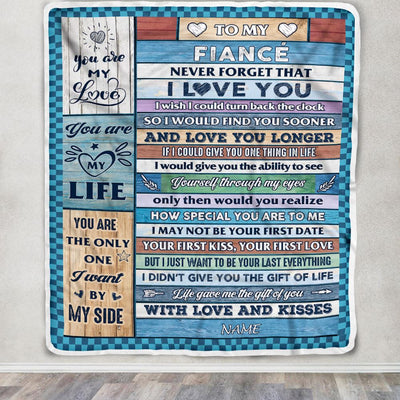 you are
MY
Love
You are
MY
LIFE
YOU ARE
THE ONLY
ONE
I want
BY
MY SIDE
TO MY
FIANCÉ
NEVER FORGET THAT
I LOVE YOU
I wish I could turn back the clock
SO I WOULD FIND YOU SOONER
AND LOVE YOU LONGER
IF I COULD GIVE YOU ONE THING IN LIFE
I would give you the ability to see
Yourself through my eyes
only then would you realize
HOW SPECIAL YOU ARE TO ME
I MAY NOT BE YOUR FIRST DATE
YOUR FIRST KISS, YOUR FIRST LOVE
BUT I JUST WANT TO BE YOUR LAST EVERYTHING
I DIDN'T GIVE YOU THE GIFT OF LIFE
Life gave me the gift of you
WITH LOVE AND KISSES
NAME